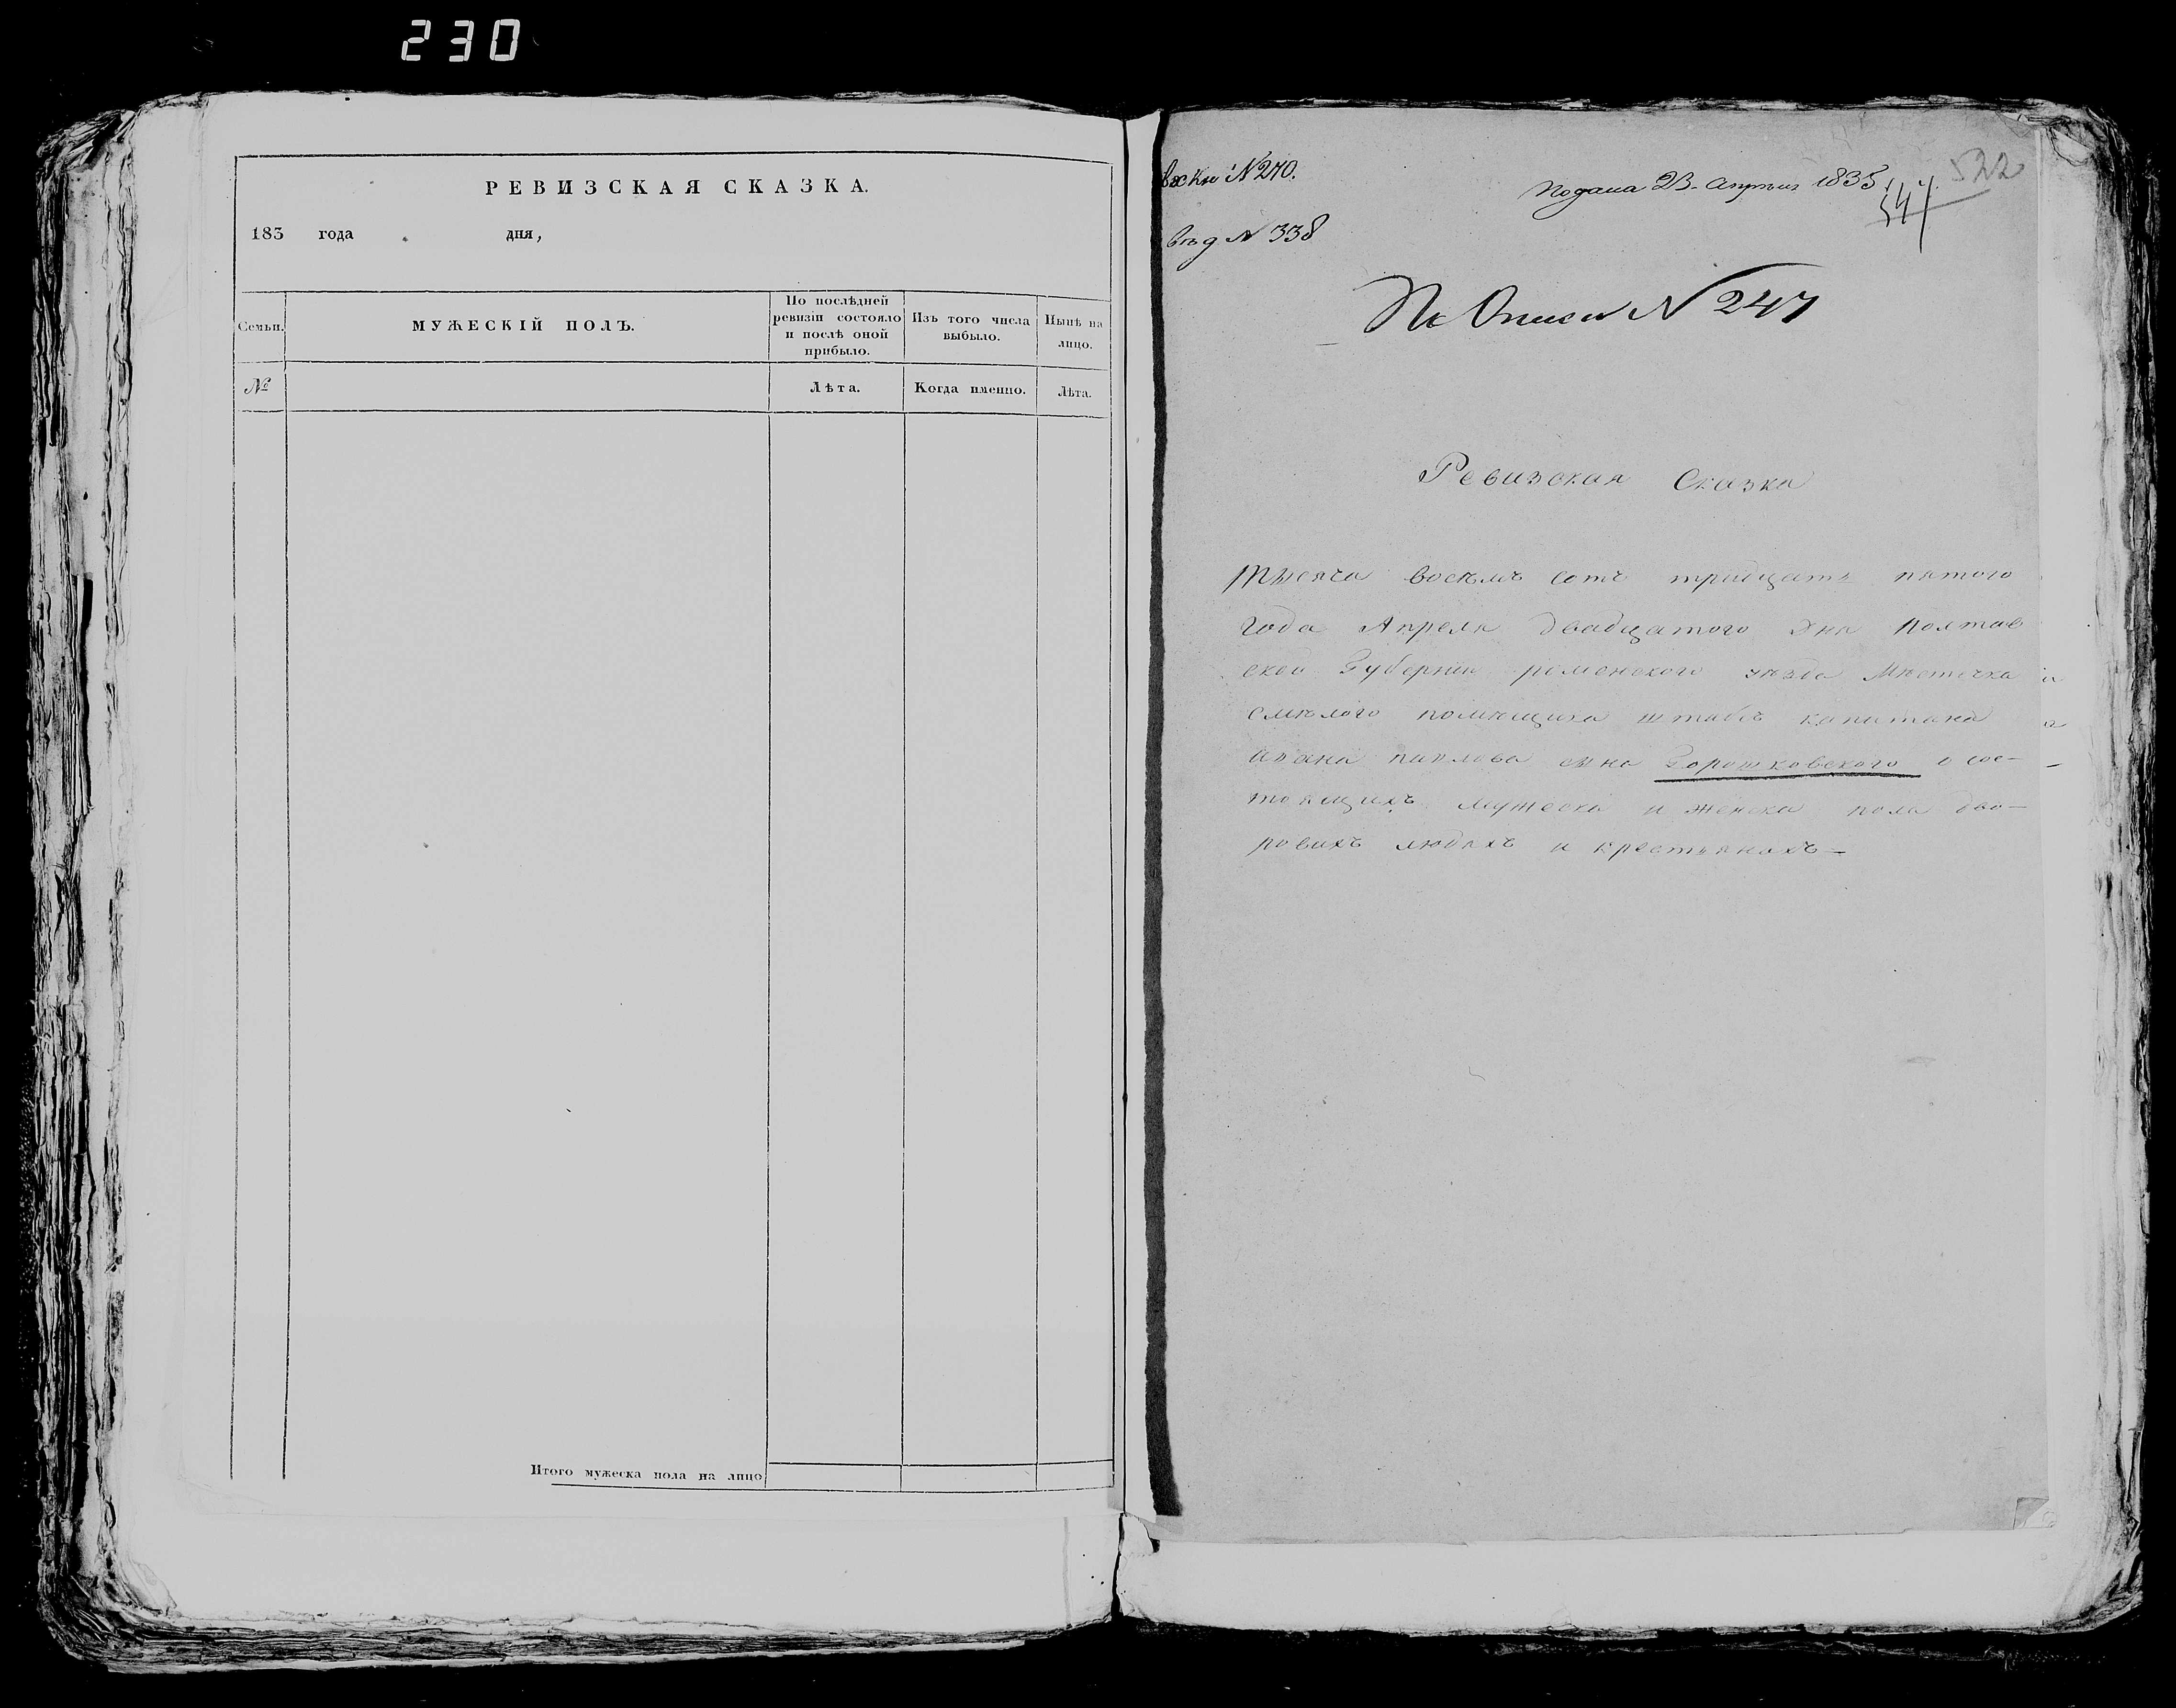 230
РЕВИЗСКАЯ СКАЗКА.
183 года дня,
Семьи.
МУЖЕСКІЙ ПОЛЪ.
По послѣдней ревизіи состояло и послѣ оной прибыло.
Изъ того числа выбыло.
Нынѣ на лицо.
№
Лѣта.
Когда именно.
Лѣта.
Итого мужеска пола на лицо
N 270.
Подана 23 Апреля 1835
522
547
N 338
По Описи N 247
Ревизская Сказка
тысяча восемъ сотъ тридцать пятого
года Апреля двадцатого дня Полтав
ской Губерніи роменского уѣзда Мѣстечка
смѣлого помѣщика штабсъ капитана
ивана павлова сына Горошковского о сос-
тоящихъ мужеска и женска пола дво-
ровихъ людяхъ и крестьянахъ